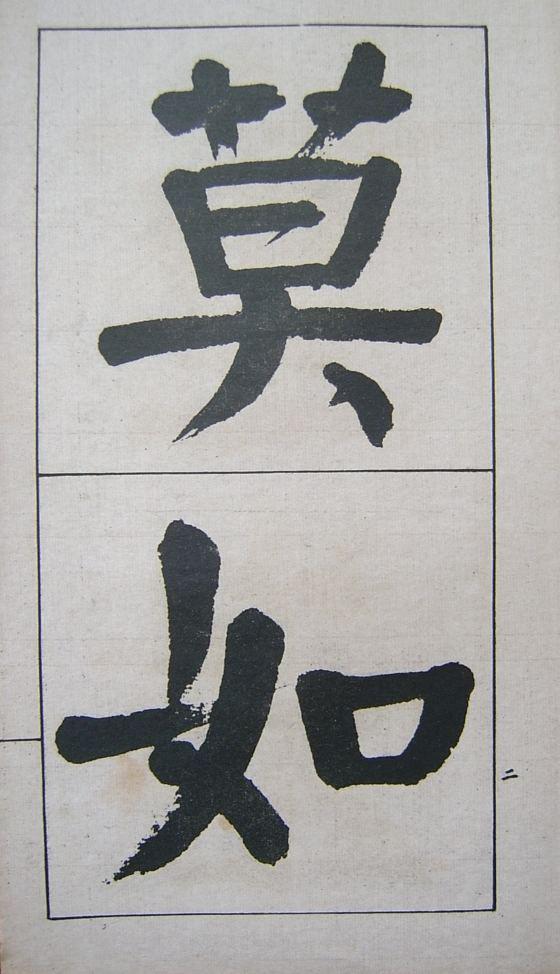 莫
如
二